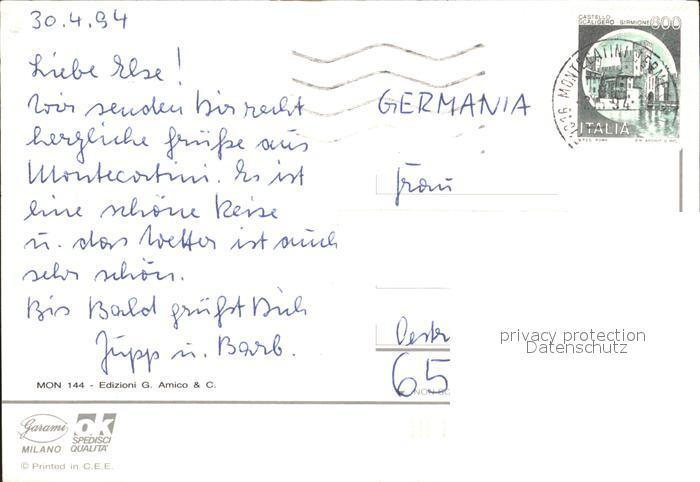 30.4.94
Liebe Else!
Wir senden Dir recht
herzliche Grüße aus
Montecatini. Es ist
eine schöne Reise
u. das Wetter ist auch
sehr schön.
Bis Bald grüßt Dich
Jupp u. Barb.
MON 144 - Edizioni G. Amico & C.
Garami
MILANO
ok
SPEDISCI
QUALITA'
© Printed in C.E.E.
CASTELLO
SCALIGERO SIRMIONE
600
ITALIA
GERMANIA
Frau
Oestr
65
privacy protection
Datenschutz